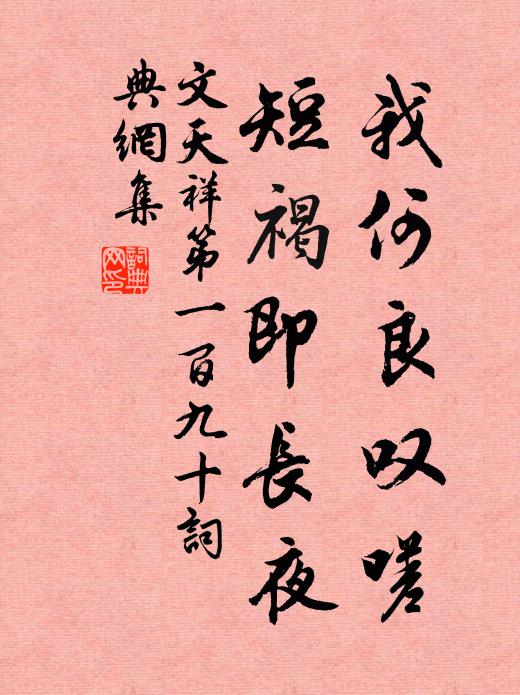 我何良叹嗟
短褐即長夜
文天祥第一百九十詞
典網集
詞典网印